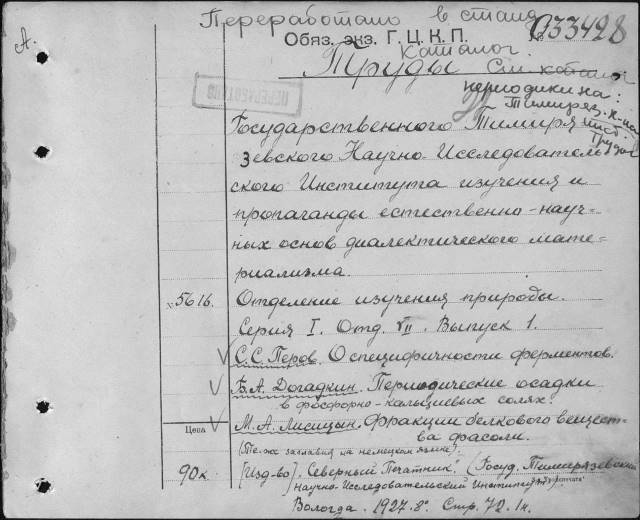 А.
Переработано в станд.
каталог.
Обяз. экз. Г. Ц. К. П. № 033428
Труды См. каталог
периодики на:
Тимиряз.
инст.
Труды
ПЕРЕРАБОТАНО
Государственного Тимиря
зевского Научно-Исследователь
ского Института изучения и
пропаганды естественно-науч-
ных основ диалектического мате-
риализма.
х5616. Отделение изучения природы.
Серия I. Отд. VII. Выпуск 1.
√ С. С. Перов. О специфичности ферментов.
√ Б. А. Догадкин. Периодические осадки
в фосфорно-кальциевых солях.
Цена √ М. А. Лисицын. Фракции белкового вещест-
ва фасоли.
(Те-же заглавия на немецком языке).
90к [Изд-во]. Северный Печатник. (Госуд. Тимирязевский
Научно-Исследовательский Институт).
Вологда. 1927. 8°. Стр. 72. 1н.